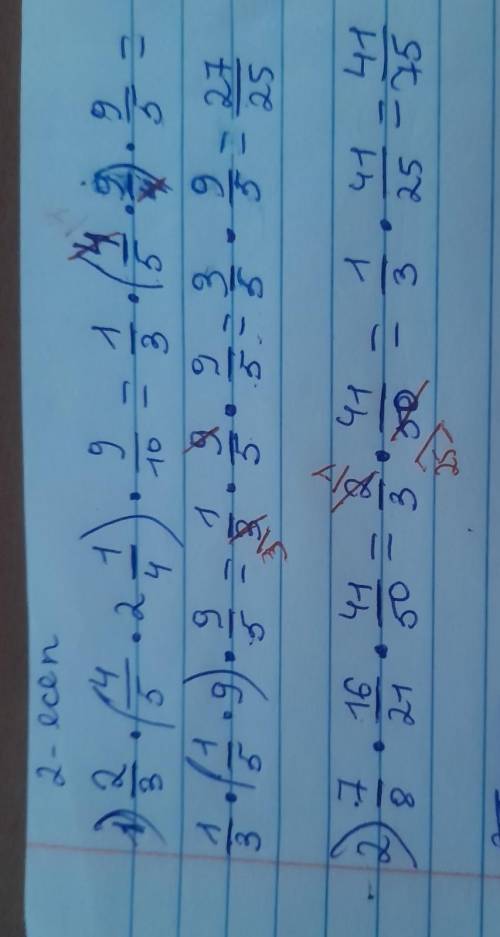 2-есеп
1) 2/3 · (4/5 · 2 1/4) · 9/10 = 1/3 · (4/5 · 9/4) · 9/5 =
1/3 · (1/5 · 9) · 9/5 = 1/3 · 9/5 · 9/5 = 3/5 · 9/5 = 27/25
2) 7/8 · 16/21 · 41/50 = 2/3 · 41/50 = 1/3 · 41/25 = 41/75